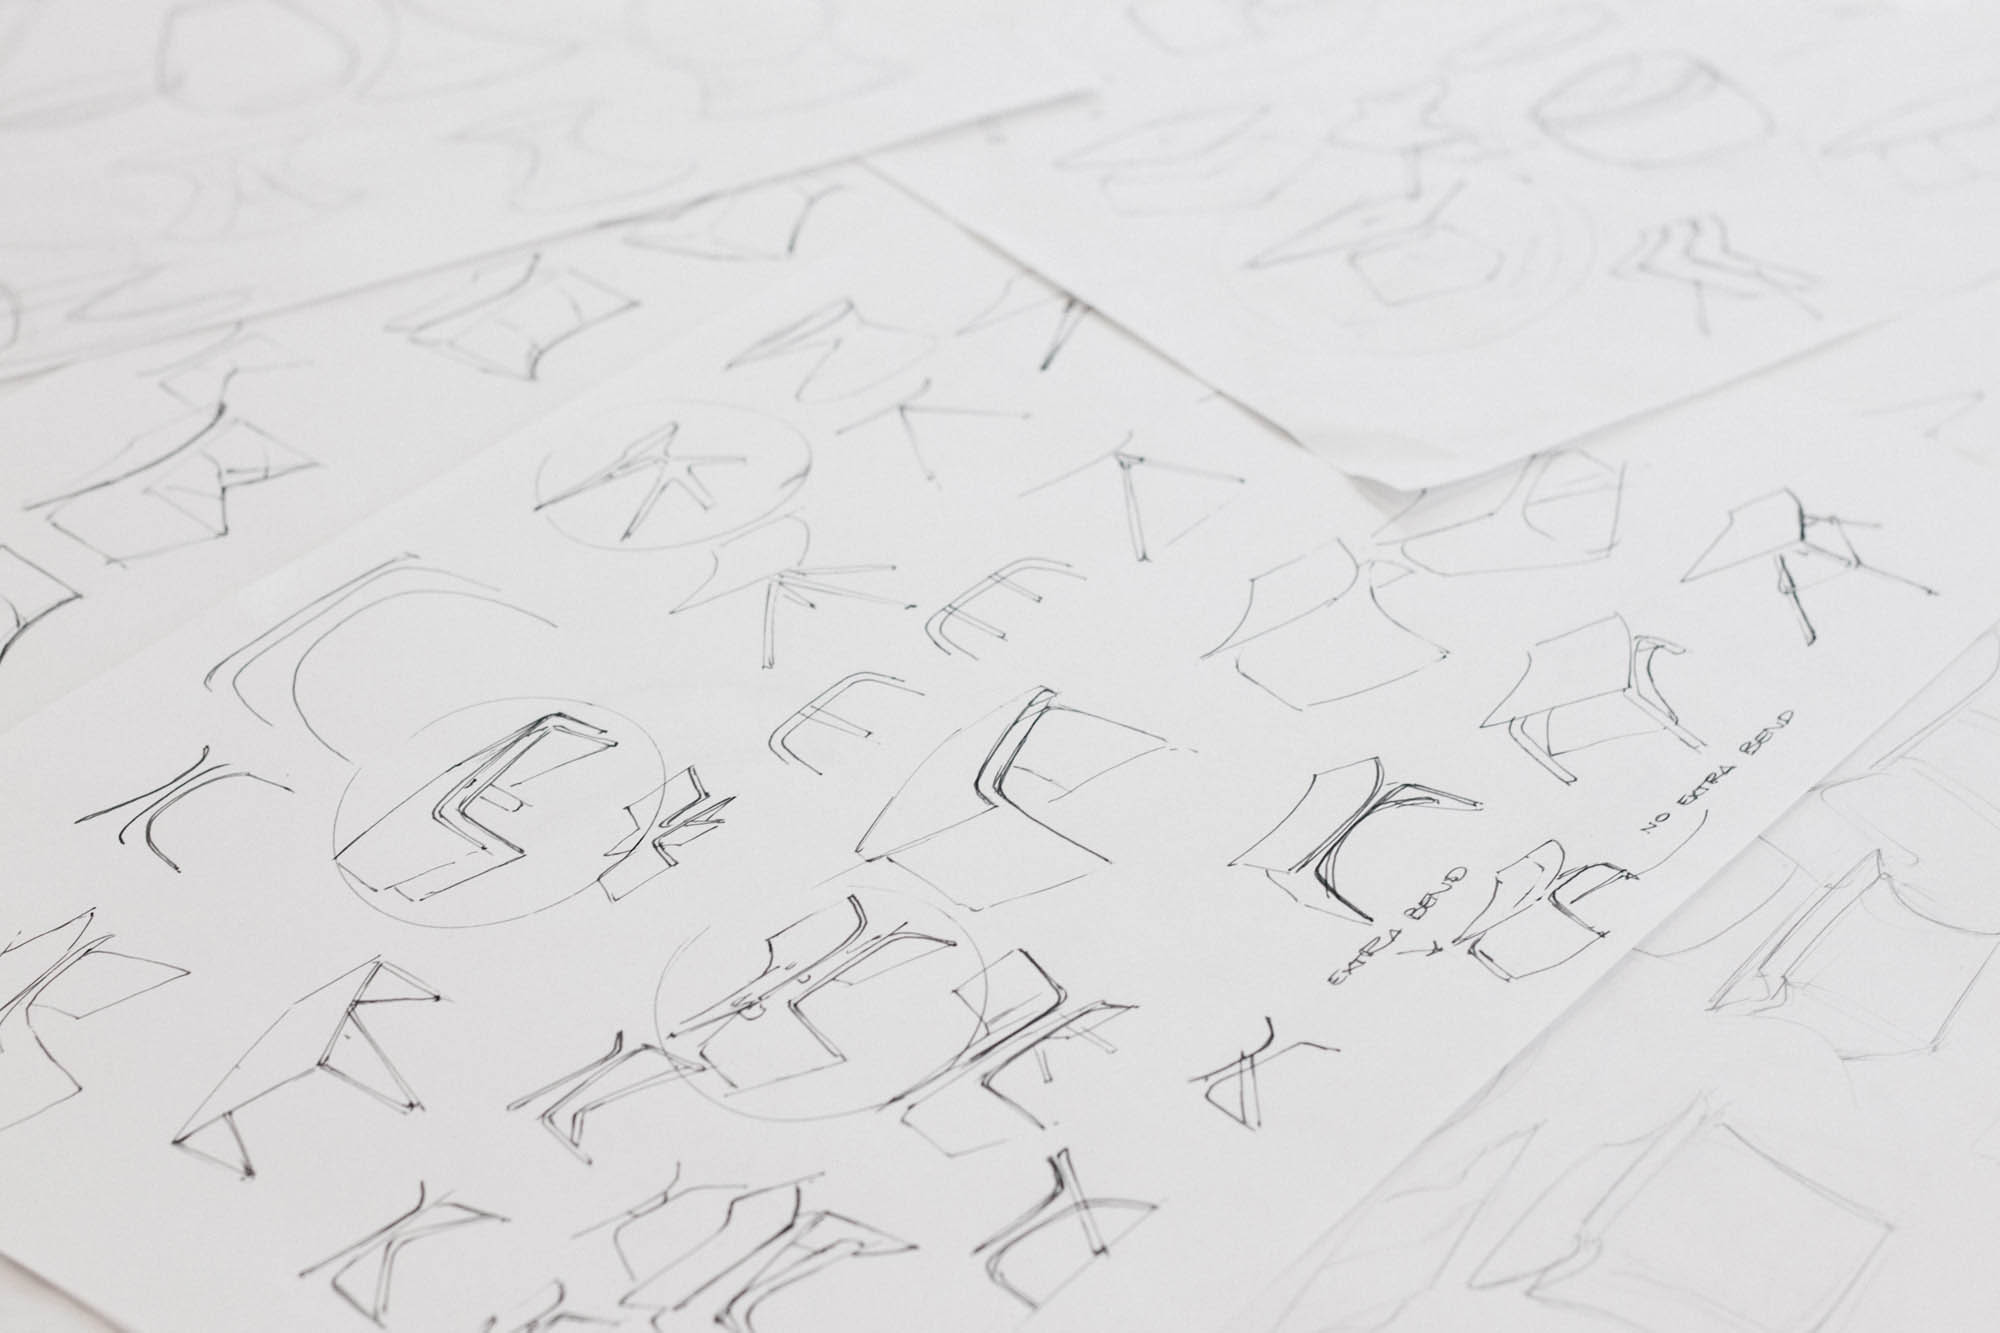 NO EXTRA BEND
EXTRA BEND